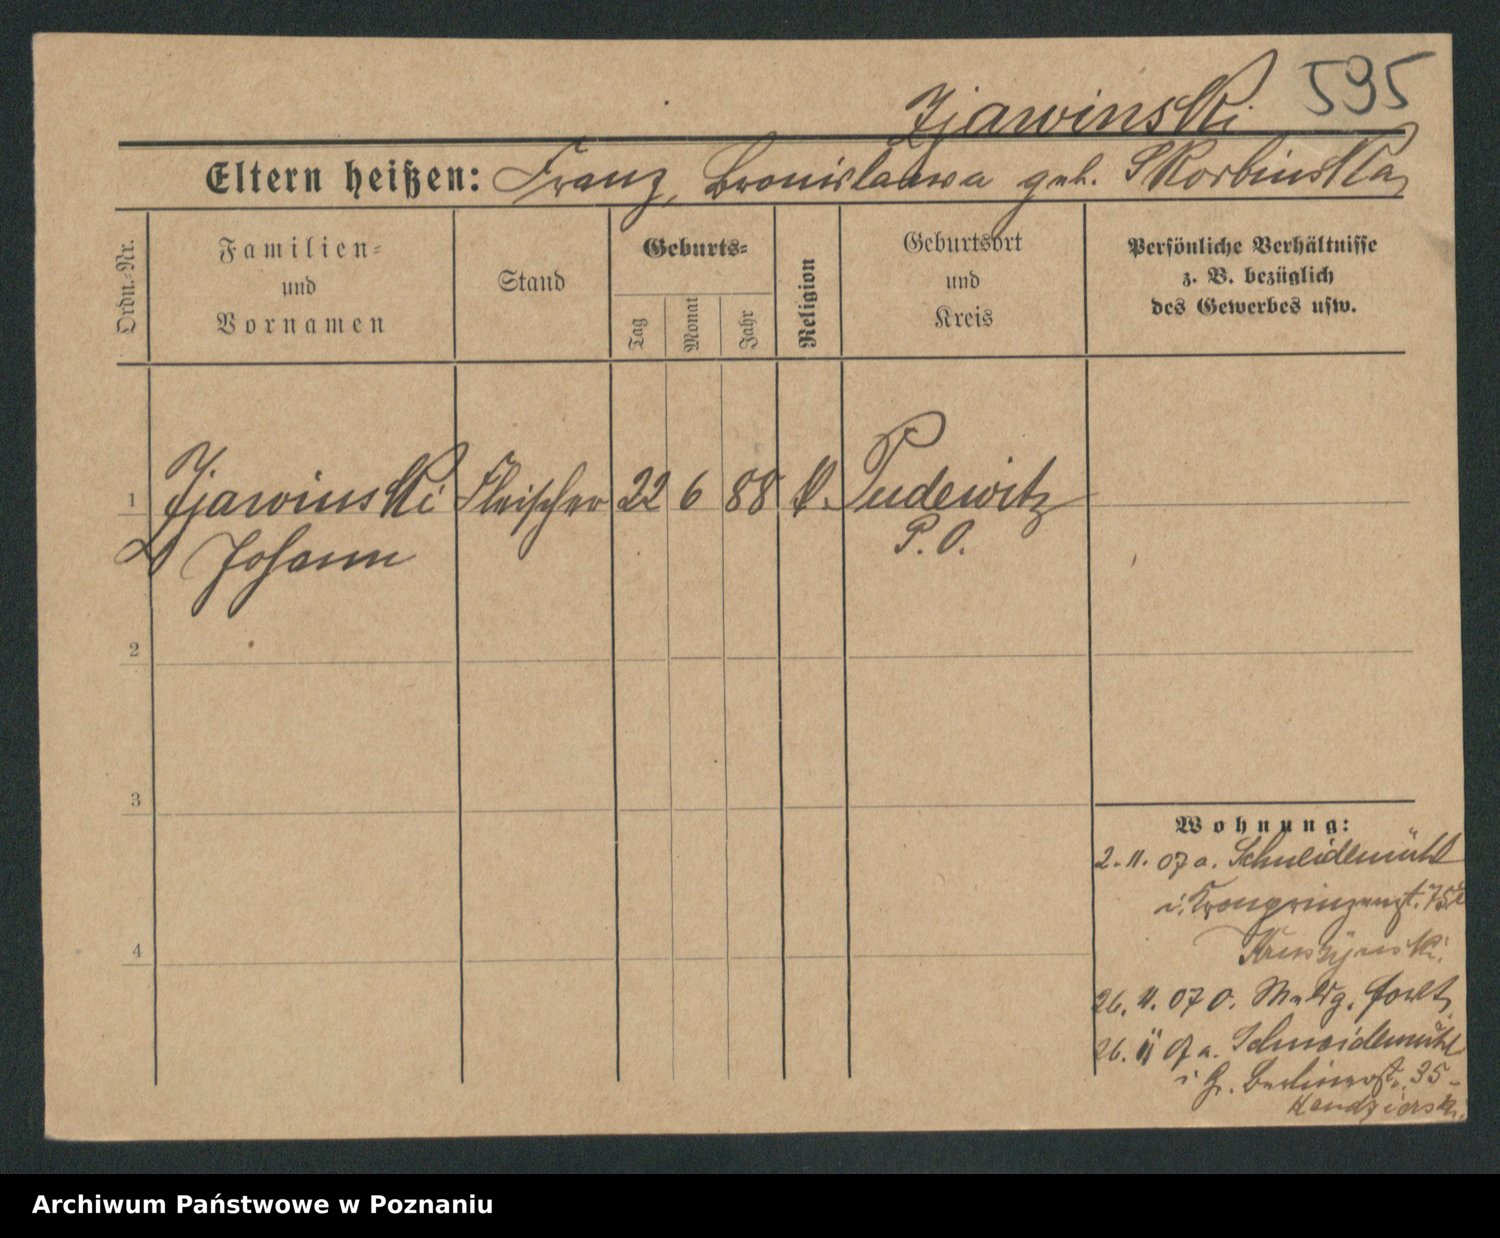 595
Zjawinski
Eltern heißen: Franz, Bronislawa geb. Skorbinska
Ordn.-Nr.
Familien-
und
Vornamen
Stand
Geburts-
Tag
Monat
Jahr
Religion
Geburtsort
und
Kreis
Persönliche Verhältnisse
z. B. bezüglich
des Gewerbes usw.
1 Zjawinski Fleischer 22 6 88 k. Pudewitz
Johann P. O.
2
3
4
Wohnung:
2. 11. 07 a. Schneidemühl
i. Kronprinzenst. 75
26. 11. 07 o.
26. 11 07 a. Schneidemühl
i Gr. Berlinerst. 35-